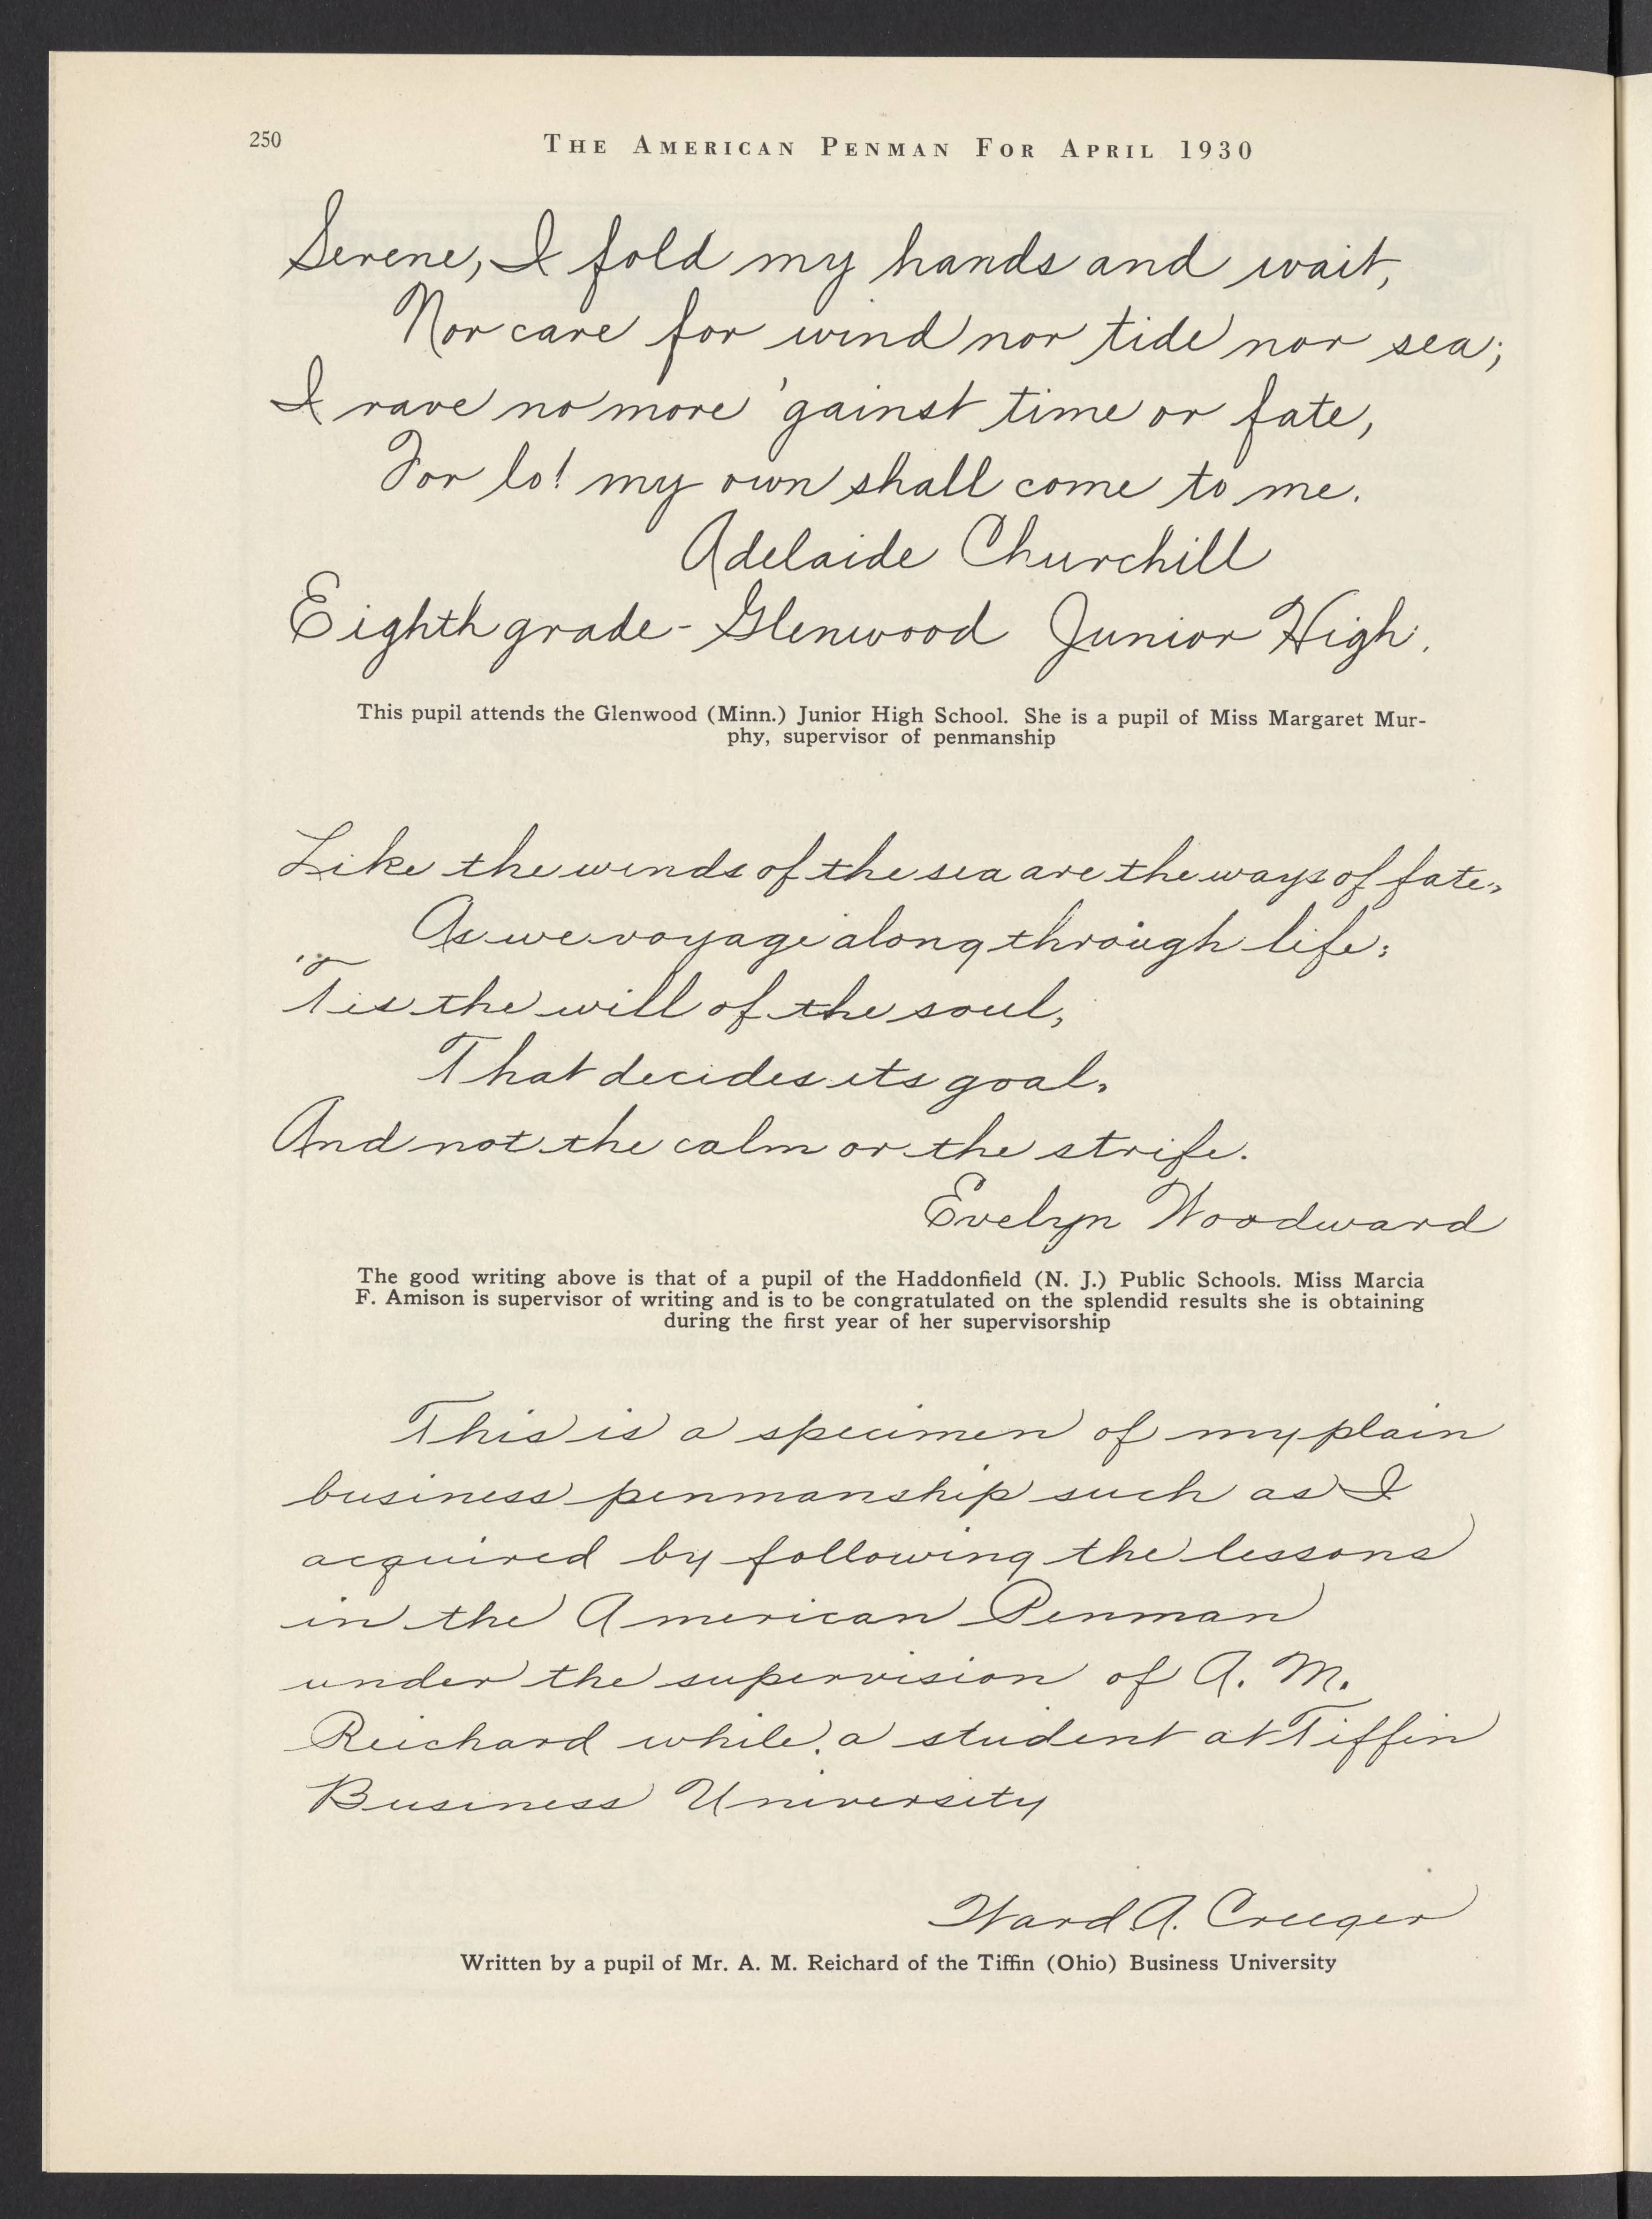 250
THE AMERICAN PENMAN FOR APRIL 1930
Serene, I fold my hands and wait,
Nor care for wind nor tide nor sea;
I rave no more 'gainst time or fate,
For lo! my own shall come to me.
Adelaide Churchill
Eighth grade - Glenwood Junior High.
This pupil attends the Glenwood (Minn.) Junior High School. She is a pupil of Miss Margaret Mur-
phy, supervisor of penmanship
Like the winds of the sea are the ways of fate,
As we voyage along through life;
'Tis the will of the soul,
That decides its goal,
And not the calm or the strife.
Evelyn Woodward
The good writing above is that of a pupil of the Haddonfield (N. J.) Public Schools. Miss Marcia
F. Amison is supervisor of writing and is to be congratulated on the splendid results she is obtaining
during the first year of her supervisorship
This is a specimen of my plain
business penmanship such as I
acquired by following the lessons
in the American Penman
under the supervision of A. M.
Reichard while a student at Tiffin
Business University
Ward A. Creeger
Written by a pupil of Mr. A. M. Reichard of the Tiffin (Ohio) Business University